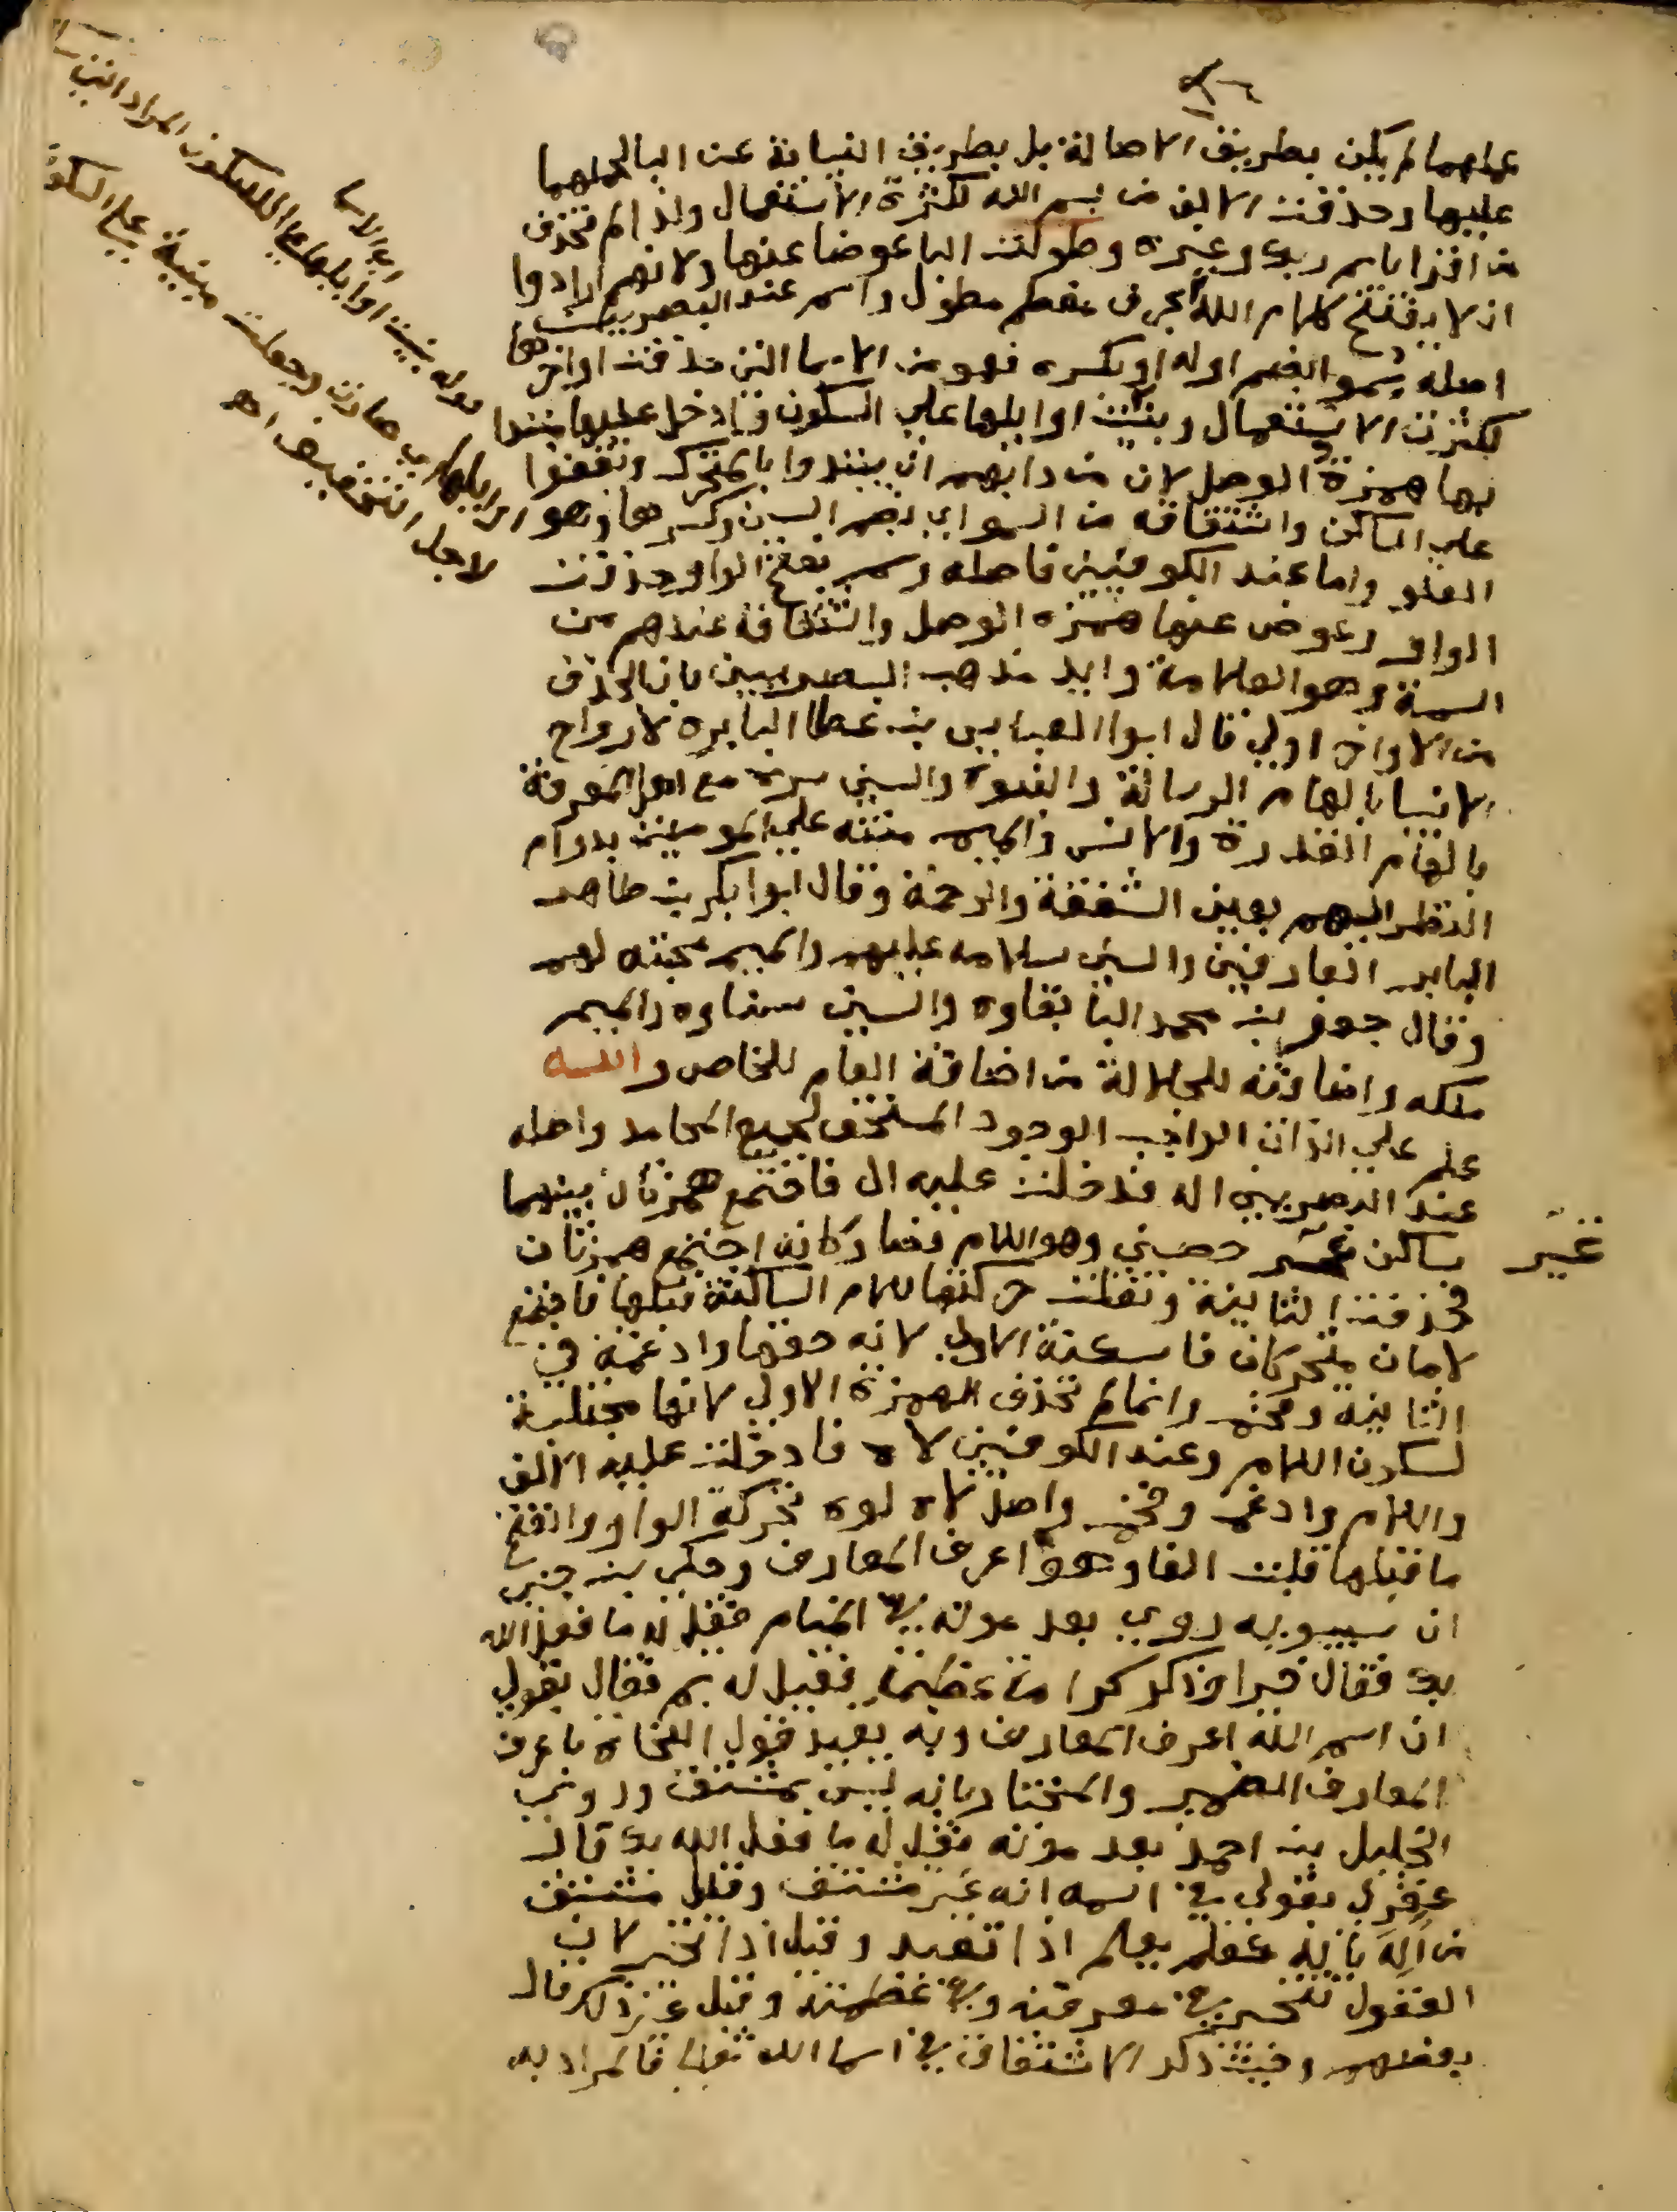 عملهما لم يكن بطريق الاصالة بل بطريق النيابة عن البا لحملهما
عليها وحذفت الالف من بسم الله لكثرة الاستعمال ولذا لم تحذف
من اقرا باسم ربك وغيره وطولت البا عوضا عنها ولانهم ارادوا
ان لا يفتتح كلام الله بحرف مفخم مطول واسم عند البصريين
اصله سمو بضم اوله او بكسره فهو من الاسما التي حذفت اواخرها
لكثرة الاستعمال وبنيت اوايلها علي السكون وادخل عليها مبتدا
بها همزة الوصل لان من دابهم ان يبتدوا بالمتحرك ويقفوا
علي الساكن واشتقاقه من السمو اي بضم السين وكسرها وهو
العلو واما عند الكوفيين فاصله وسم بفتح الواو حذفت
الواو وعوض عنها همزة الوصل واشتقاقه عندهم من
السمة وهو العلامة وايد مذهب البصريين بان الحذف
من الاواخر اولي قال ابوا العباس بن عطا البا بره لارواح
الانبيا بالهام الرسالة والنبوة والسين سره مع اهل المعرفة
بالهام القدرة والانس والميم منته علي المومنين بدوام
النظر اليهم بعين الشفقة والرحمة وقال ابوا بكر بن طاهر
البا بر العارفين والسين سلامه عليهم والميم محبته لهم
وقال جعفر بن محمد البا بقاوه والسين سناوه والميم
ملكه واضافته للجلالة من اضافة العام للخاص والله
علم علي الذات الواجب الوجود المستحق لجميع المحامد واصله
عند البصريين اله فدخلت عليه ال فاجتمع همزتان بينهما
ساكن غير حصين وهو اللام فصار كانه اجتمع همزتان
فحذفت الثانية ونقلت حركتها للام الساكنة قبلها فاجتمع
لامان متحركان فاسكنة الاولي لانه حقها وادغمة في
الثانية وفخم وانما لم تحذف الهمزة الاولي لانها مجتلبة
لسكون اللام وعند الكوفيين لاه فادخلت عليه الالف
واللام وادغم وفخم واصل لاه لوه تحركة الواو وانفتح
ما قبلها قلبت الفا وهو اعرف المعارف وحكي بن جني
ان سيبويه روي بعد موته في المنام فقيل له ما فعل الله
بك فقال خيرا وذكر كرامة عظيمة فقيل له بم فقال بقولي
ان اسم الله اعرف المعارف وبه يقيد قول النحاة باعرف
المعارف الضمير والمختار بانه ليس بمشتق وروي
الخليل بن احمد بعد موته فقيل له ما فعل الله بك قال
غفر لي بقولي في اسمه انه غير مشتق وقيل مشتق
من اله ياله كعلم يعلم اذا تعبد وقيل اذا تحير لان
العقول تتحير في معرفته وفي عظمته وقيل غير ذلك قال
بعضهم وحيث ذكر الاشتقاق في اسما الله تعالي فالمراد به
غير
اي الاسما
قوله بنيت اوايلها علي السكون المراد
اوايلها صارت وجعلت مبنية علي السكون
لاجل التخفيف اه